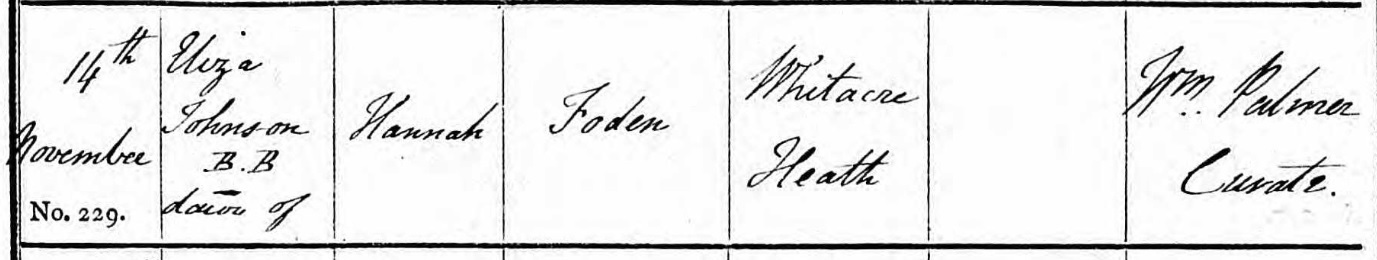 14th
November
No. 229.
Eliza
Johnson
B.B
daur of
Hannah
Foden
Whitacre
Heath
Wm. Palmer
Curate.